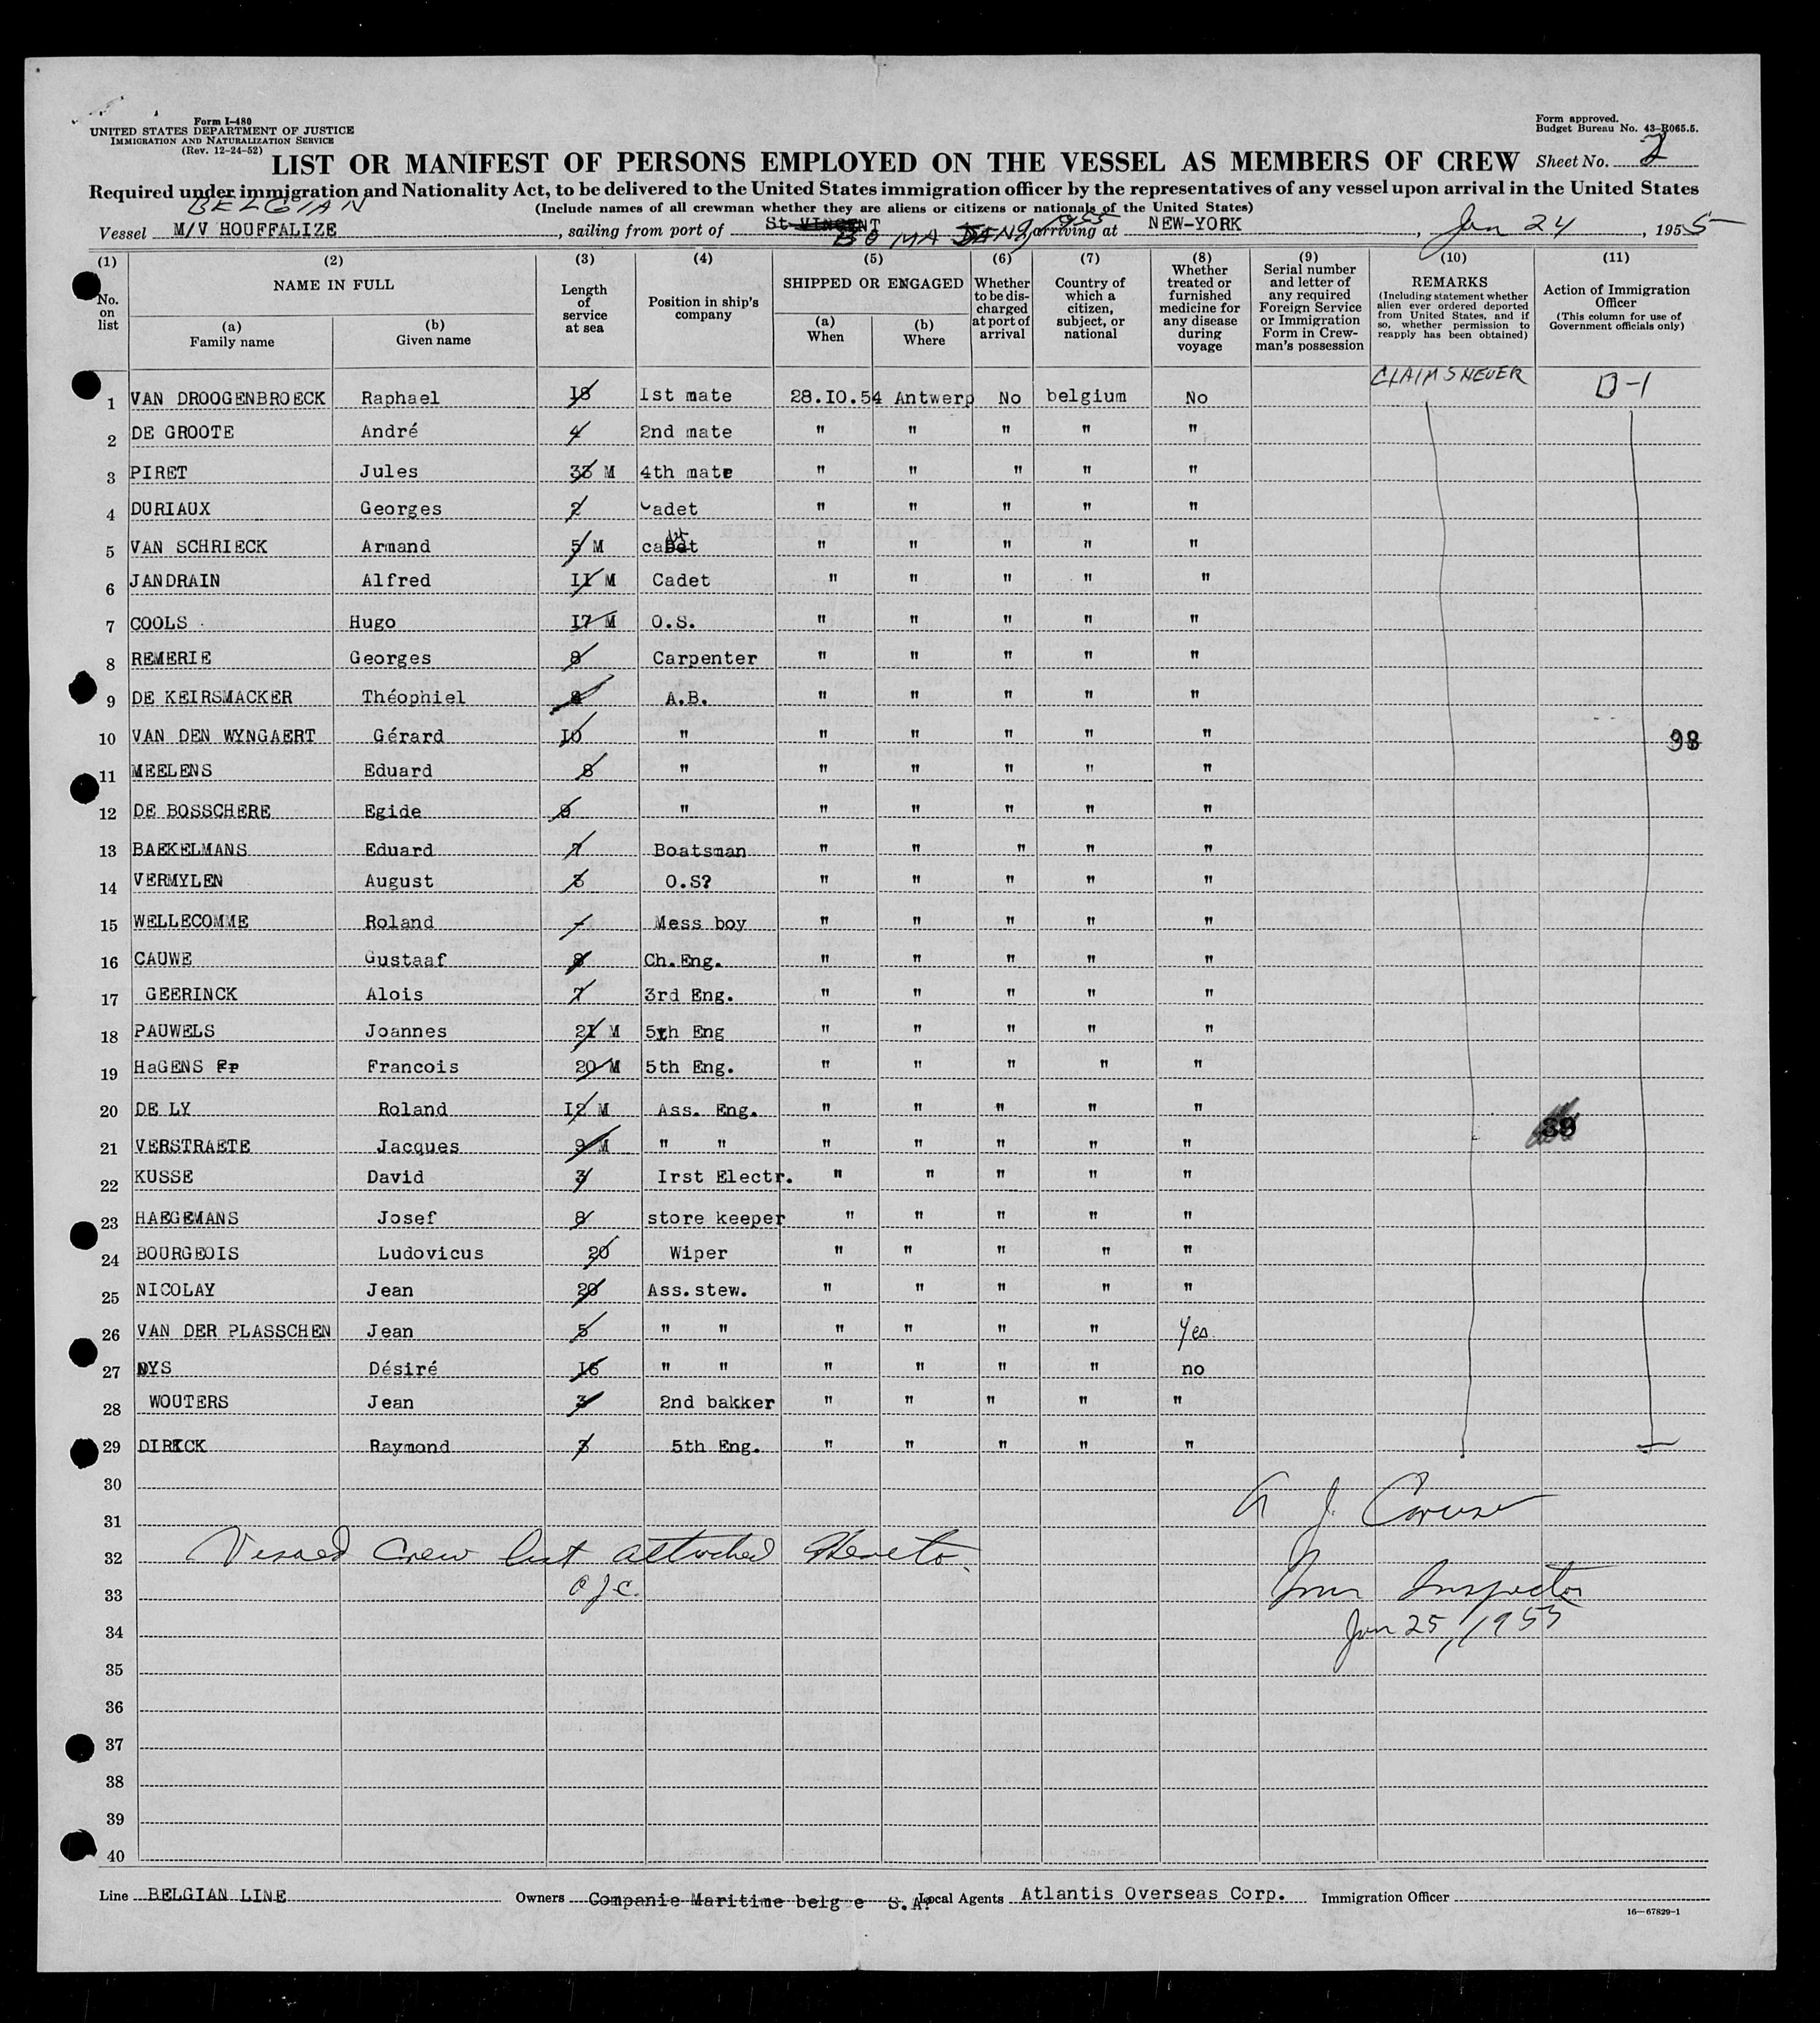 Form I-480
UNITED STATES DEPARTMENT OF JUSTICE
IMMIGRATION AND NATURALIZATION SERVICE
(Rev. 12-24-52)
Form approved.
Budget Bureau No. 43-R065.5.
LIST OR MANIFEST OF PERSONS EMPLOYED ON THE VESSEL AS MEMBERS OF CREW Sheet No. 2
Required under immigration and Nationality Act, to be delivered to the United States immigration officer by the representatives of any vessel upon arrival in the United States
(Include names of all crewman whether they are aliens or citizens or nationals of the United States)
BELGIAN
Vessel M/V HOUFFALIZE, sailing from port of St VINCENT BOMA JAN 9, 1955 arriving at NEW-YORK, Jan 24, 1955
(1) No. on list
(2) NAME IN FULL (a) Family name (b) Given name
(3) Length of service at sea
(4) Position in ship's company
(5) SHIPPED OR ENGAGED (a) When (b) Where
(6) Whether to be discharged at port of arrival
(7) Country of which a citizen, subject, or national
(8) Whether treated or furnished medicine for any disease during voyage
(9) Serial number and letter of any required Foreign Service or Immigration Form in Crewman's possession
(10) REMARKS (Including statement whether alien ever ordered deported from United States, and if so, whether permission to reapply has been obtained)
(11) Action of Immigration Officer (This column for use of Government officials only)
1 VAN DROOGENBROECK Raphael 18 1st mate 28.10.54 Antwerp No belgium No CLAIMS NEVER D-1
2 DE GROOTE André 4 2nd mate " " " " "
3 PIRET Jules 33 M 4th mate " " " " "
4 DURIAUX Georges 2 Cadet " " " " "
5 VAN SCHRIECK Armand 5 M cadet " " " " "
6 JANDRAIN Alfred 11 M Cadet " " " " "
7 COOLS Hugo 17 M O.S. " " " " "
8 REMERIE Georges 8 Carpenter " " " " "
9 DE KEIRSMACKER Théophiel A.B. " " " " "
10 VAN DEN WYNGAERT Gérard 10 " " " " " " 98
11 MEELENS Eduard 8 " " " " " "
12 DE BOSSCHERE Egide 9 " " " " " "
13 BAEKELMANS Eduard 7 Boatsman " " " " "
14 VERMYLEN August 3 O.S? " " " " "
15 WELLECOMME Roland - Mess boy " " " " "
16 CAUWE Gustaaf 8 Ch.Eng. " " " " "
17 GEERINCK Alois 7 3rd Eng. " " " " "
18 PAUWELS Joannes 21 M 5th Eng " " " " "
19 HaGENS Fr Francois 20 M 5th Eng. " " " " "
20 DE LY Roland 12 M Ass. Eng. " " " " "
21 VERSTRAETE Jacques 9 M " " " " " " " 39
22 KUSSE David 3 Irst Electr. " " " " "
23 HAEGEMANS Josef 8 store keeper " " " " "
24 BOURGEOIS Ludovicus 20 Wiper " " " " "
25 NICOLAY Jean 20 Ass.stew. " " " " "
26 VAN DER PLASSCHEN Jean 5 " " " " " " Yes
27 NYS Désiré 16 " " " " " " no
28 WOUTERS Jean 3 2nd bakker " " " " "
29 DIRICK Raymond 3 5th Eng. " " " " "
30
31 A J Caruso
32 Visaed Crew list attached Hereto.
33 AJC. Imm Inspector
34 Jan 25, 1955
35
36
37
38
39
40
Line BELGIAN LINE Owners Companie Maritime belg e S.A? Local Agents Atlantis Overseas Corp. Immigration Officer
16-67829-1